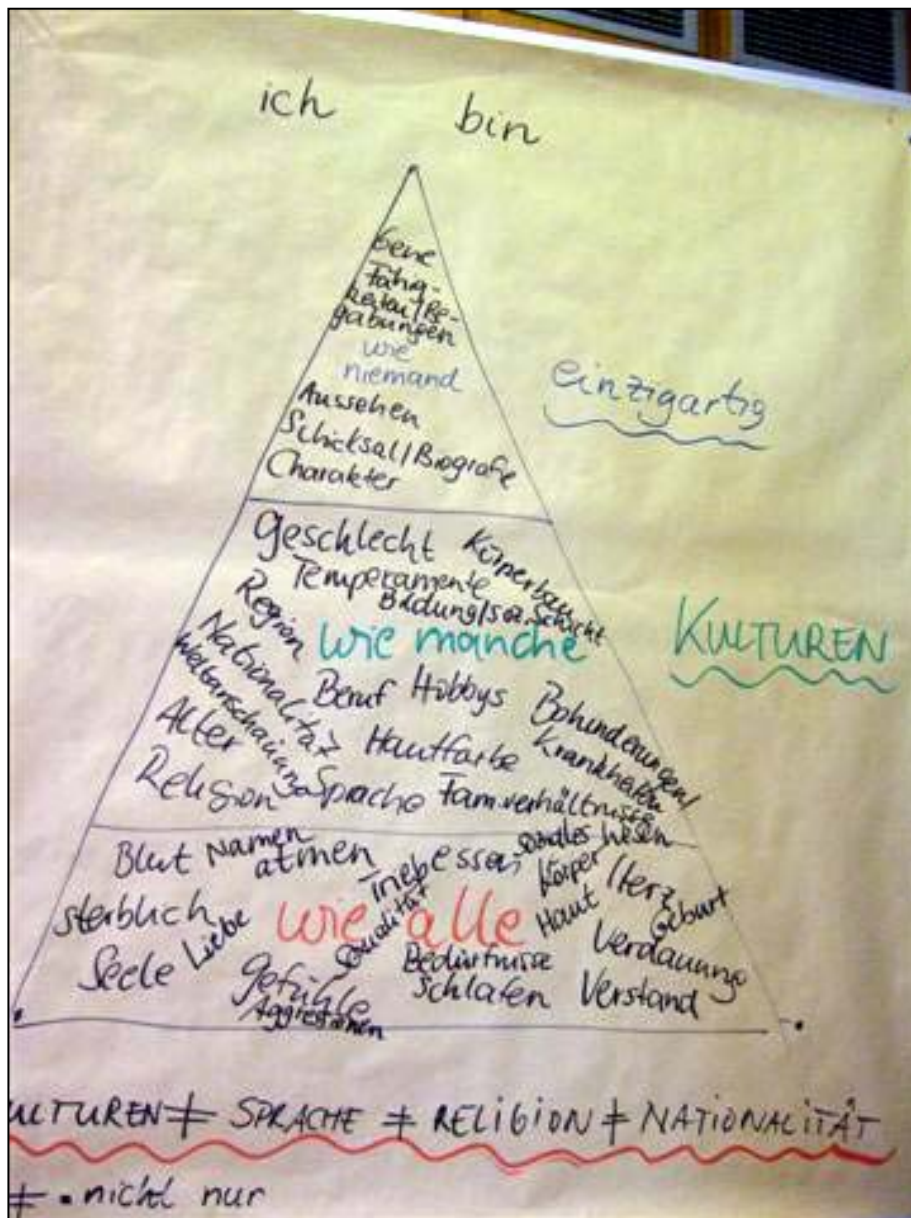 ich bin
Gene
Fähig-
keiten/Be-
gabungen
wie
niemand
einzigartig
Aussehen
Schicksal/Biografie
Charakter
Geschlecht Körperbau
Temperamente
Bildung/soz. Schicht
Region
wie manche
KULTUREN
Nationalität
Weltanschauung
Beruf Hobbys
Behinderungen/
Krankheiten
Alter
Hautfarbe
Religion
Sprache Fam.verhältnisse
soziales Wesen
Blut Namen
atmen
Trieb essen
Körper Herz
Geburt
sterblich
wie alle
Haut
Sexualität
Verdauung
Seele Liebe
Gefühle
Bedürfnisse
Schlafen Verstand
Aggressionen
ULTUREN ≠ SPRACHE ≠ RELIGION ≠ NATIONALITÄT
≠ • nicht nur